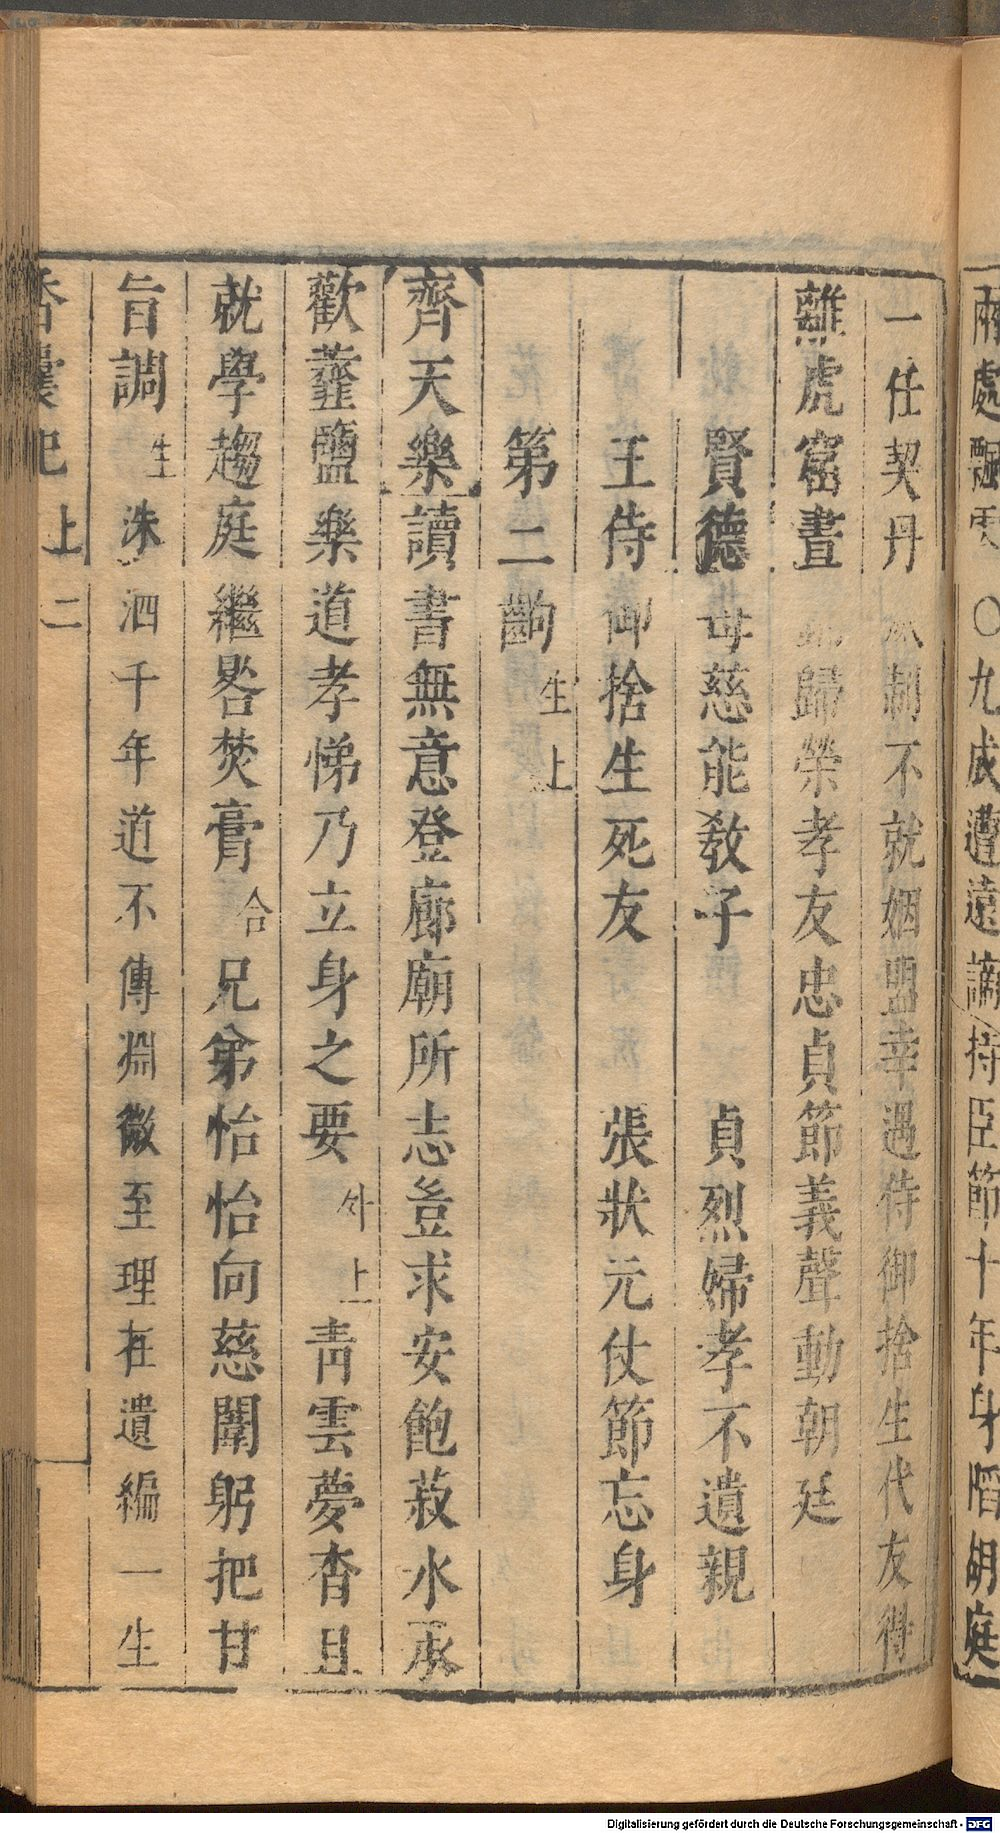 兩處飄零〇九成遭遠謫持臣節十年身陷胡庭
一任契丹制不就姻盟幸遇侍御捨生代友得
離虎窟晝歸榮孝友忠貞節義聲動朝廷
賢德母慈能敎子　貞烈婦孝不遺親
王侍御捨生死友　張狀元仗節忘身
第二齣生上
齊天樂讀書無意登廊廟所志豈求安飽菽水承
歡虀鹽樂道孝悌乃立身之要外上靑雲夢杳且
就學趨庭繼晷焚膏合兄弟怡怡向慈闈躬把甘
旨調生洙泗千年道不傳淵微至理在遺編一生
香囊記上二
Digitalisierung gefördert durch die Deutsche Forschungsgemeinschaft - DFG